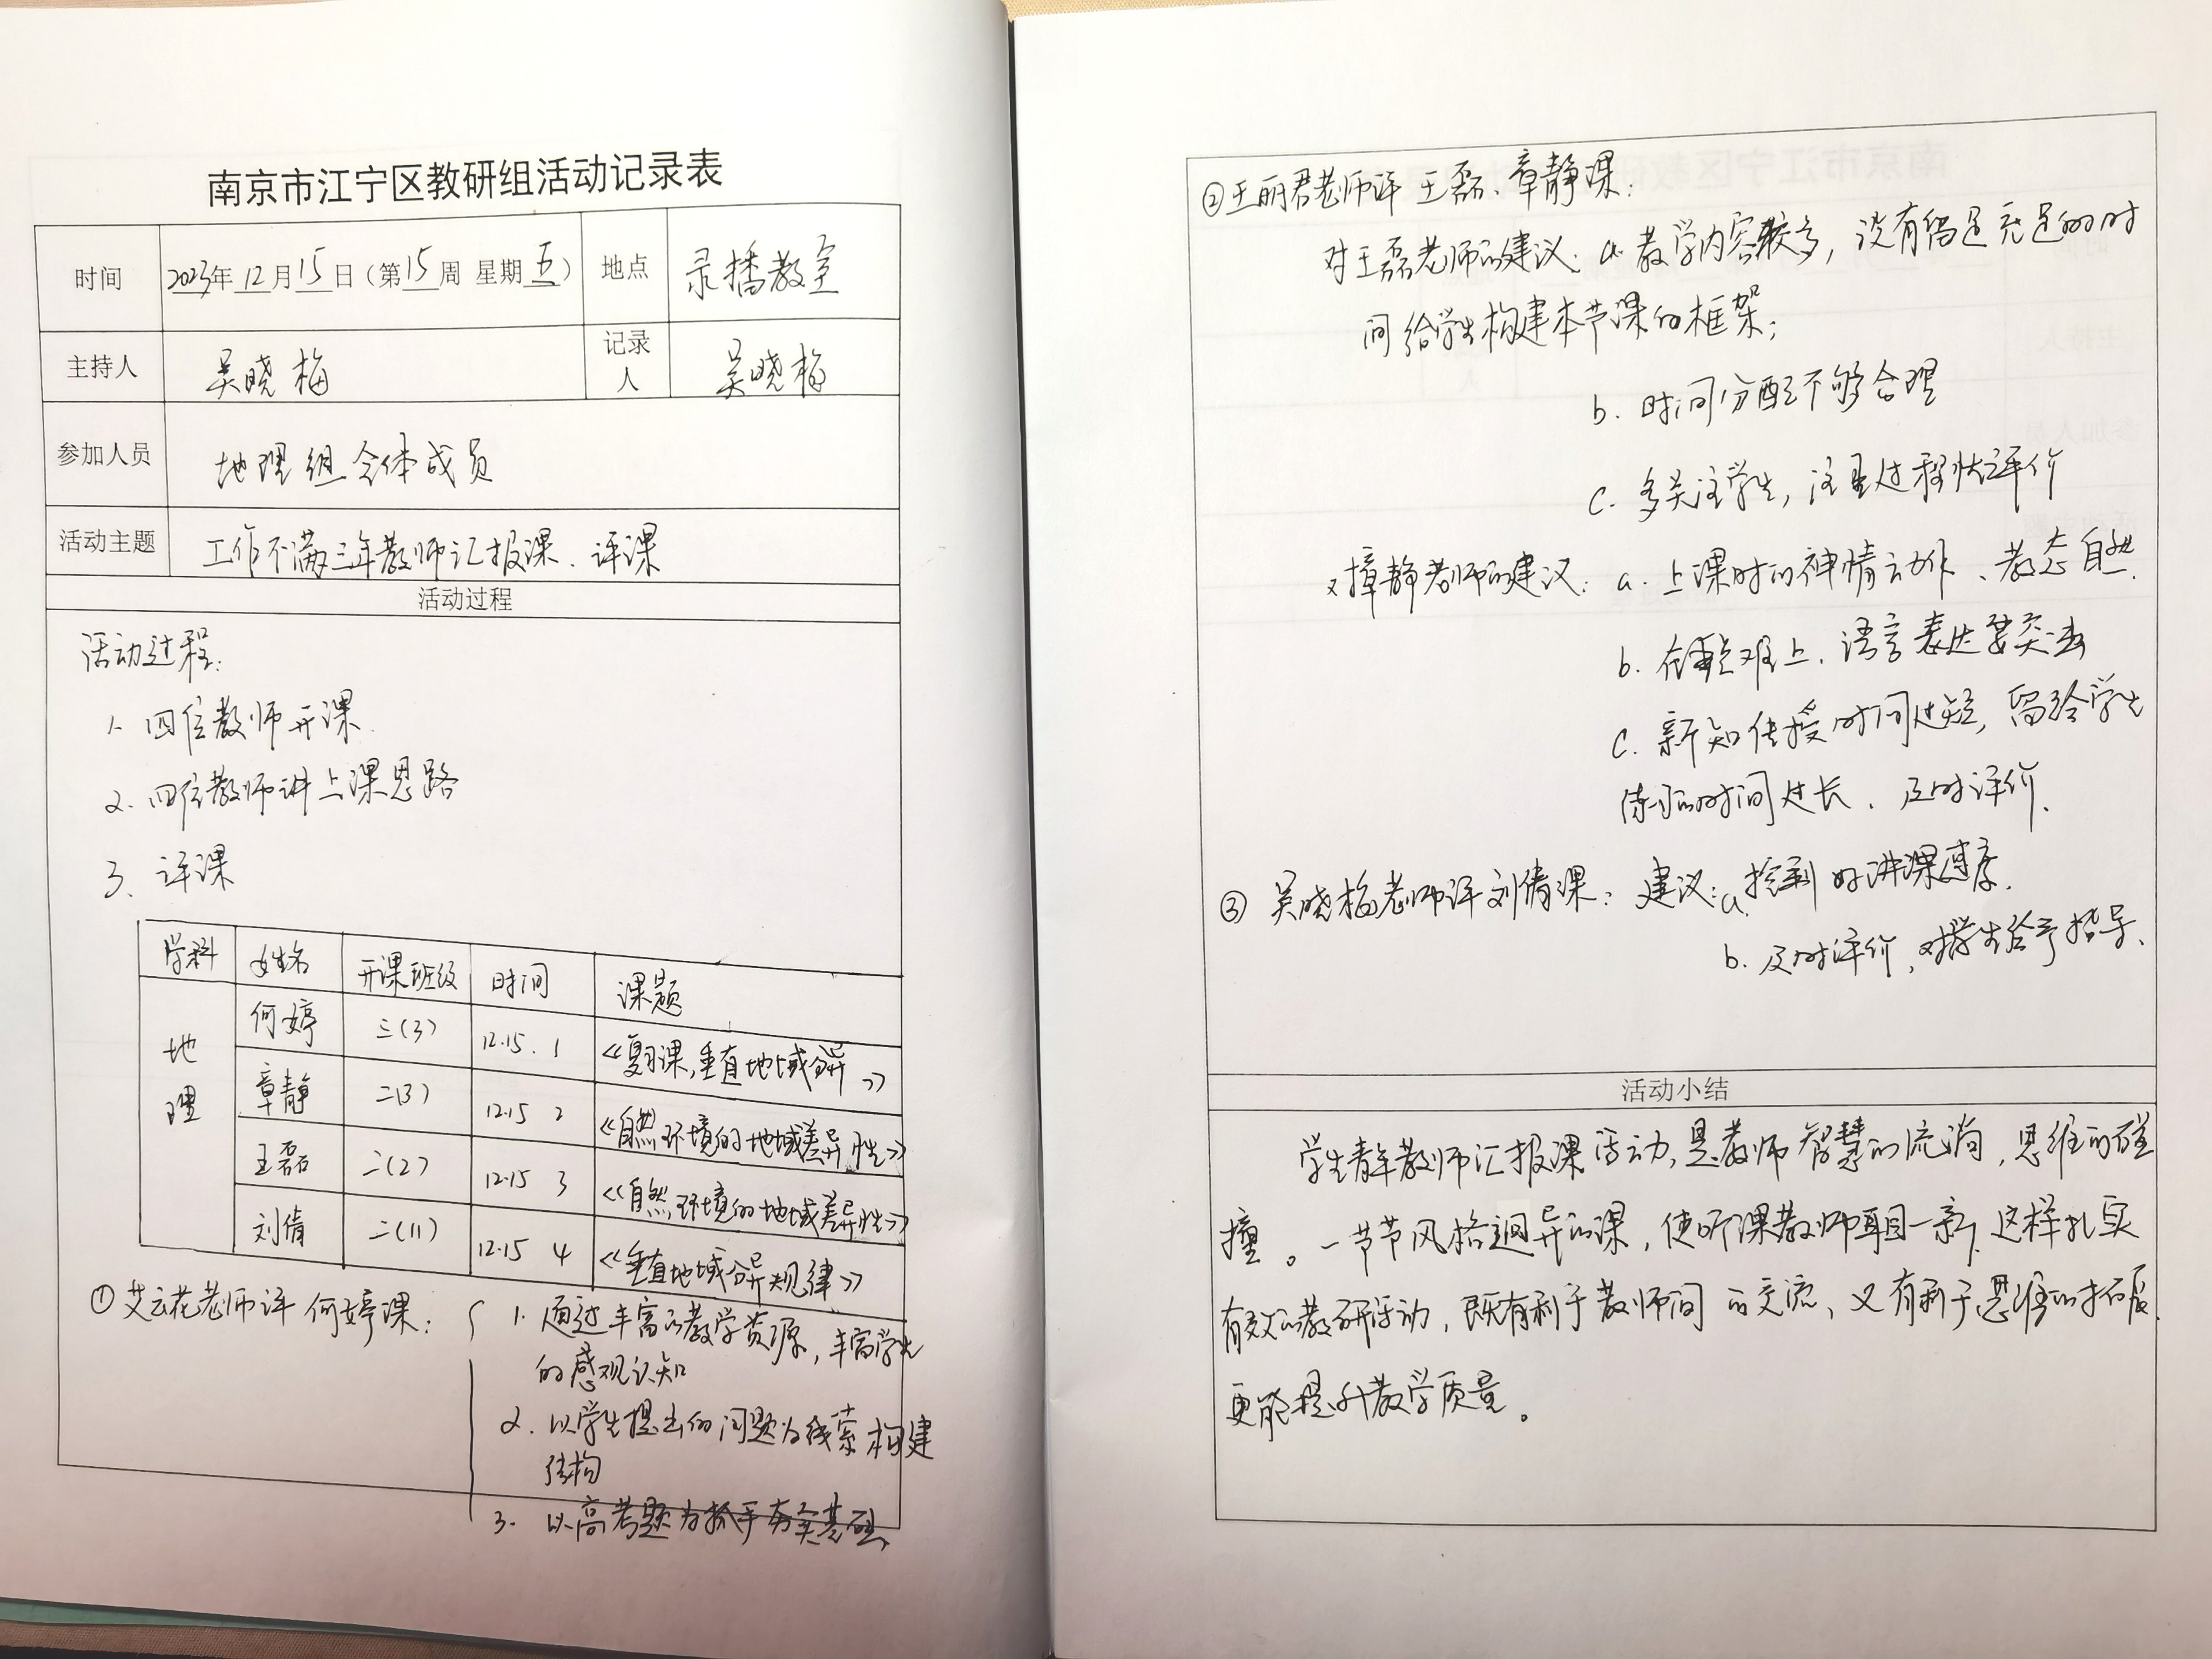 南京市江宁区教研组活动记录表
时间 2023年12月15日（第15周 星期五） 地点 录播教室
主持人 吴晓梅 记录人 吴晓梅
参加人员 地理组全体成员
活动主题 工作不满三年教师汇报课、评课
活动过程
活动过程:
1. 四位教师开课.
2. 四位教师讲上课思路
3、评课
学科 姓名 开课班级 时间 课题
地理 何婷 三(3) 12.15. 1 《复习课,垂直地域分异》
章静 二(3) 12.15 2 《自然环境的地域差异性》
王磊 二(2) 12.15 3 《自然环境的地域差异性》
刘倩 二(11) 12.15 4 《垂直地域分异规律》
①艾云花老师评 何婷课:
1. 通过丰富的教学资源，丰富学生
的感观认知
2. 以学生提出的问题为线索构建
结构
3. 以高考题为抓手夯实基础、
②王丽君老师评 王磊、章静课:
对王磊老师的建议: a. 教学内容较多，没有留足充足的时
间给学生构建本节课的框架;
b. 时间分配不够合理
c. 多关注学生，注重过程性评价
对章静老师的建议: a. 上课时的神情动作、教态自然.
b. 在重难上，语言表达要突出
c. 新知传授时间过短，留给学生
练习的时间过长、及时评价.
③ 吴晓梅老师评刘倩课: 建议: a. 控制好讲课速度.
b. 及时评价，对学生给予指导、
活动小结
青年教师汇报课活动,是教师智慧的流淌，思维的碰
撞。一节节风格迥异的课，使听课教师耳目一新.这样扎实
有效的教研活动，既有利于教师间的交流、又有利于思维的拓展.
更能提升教学质量。